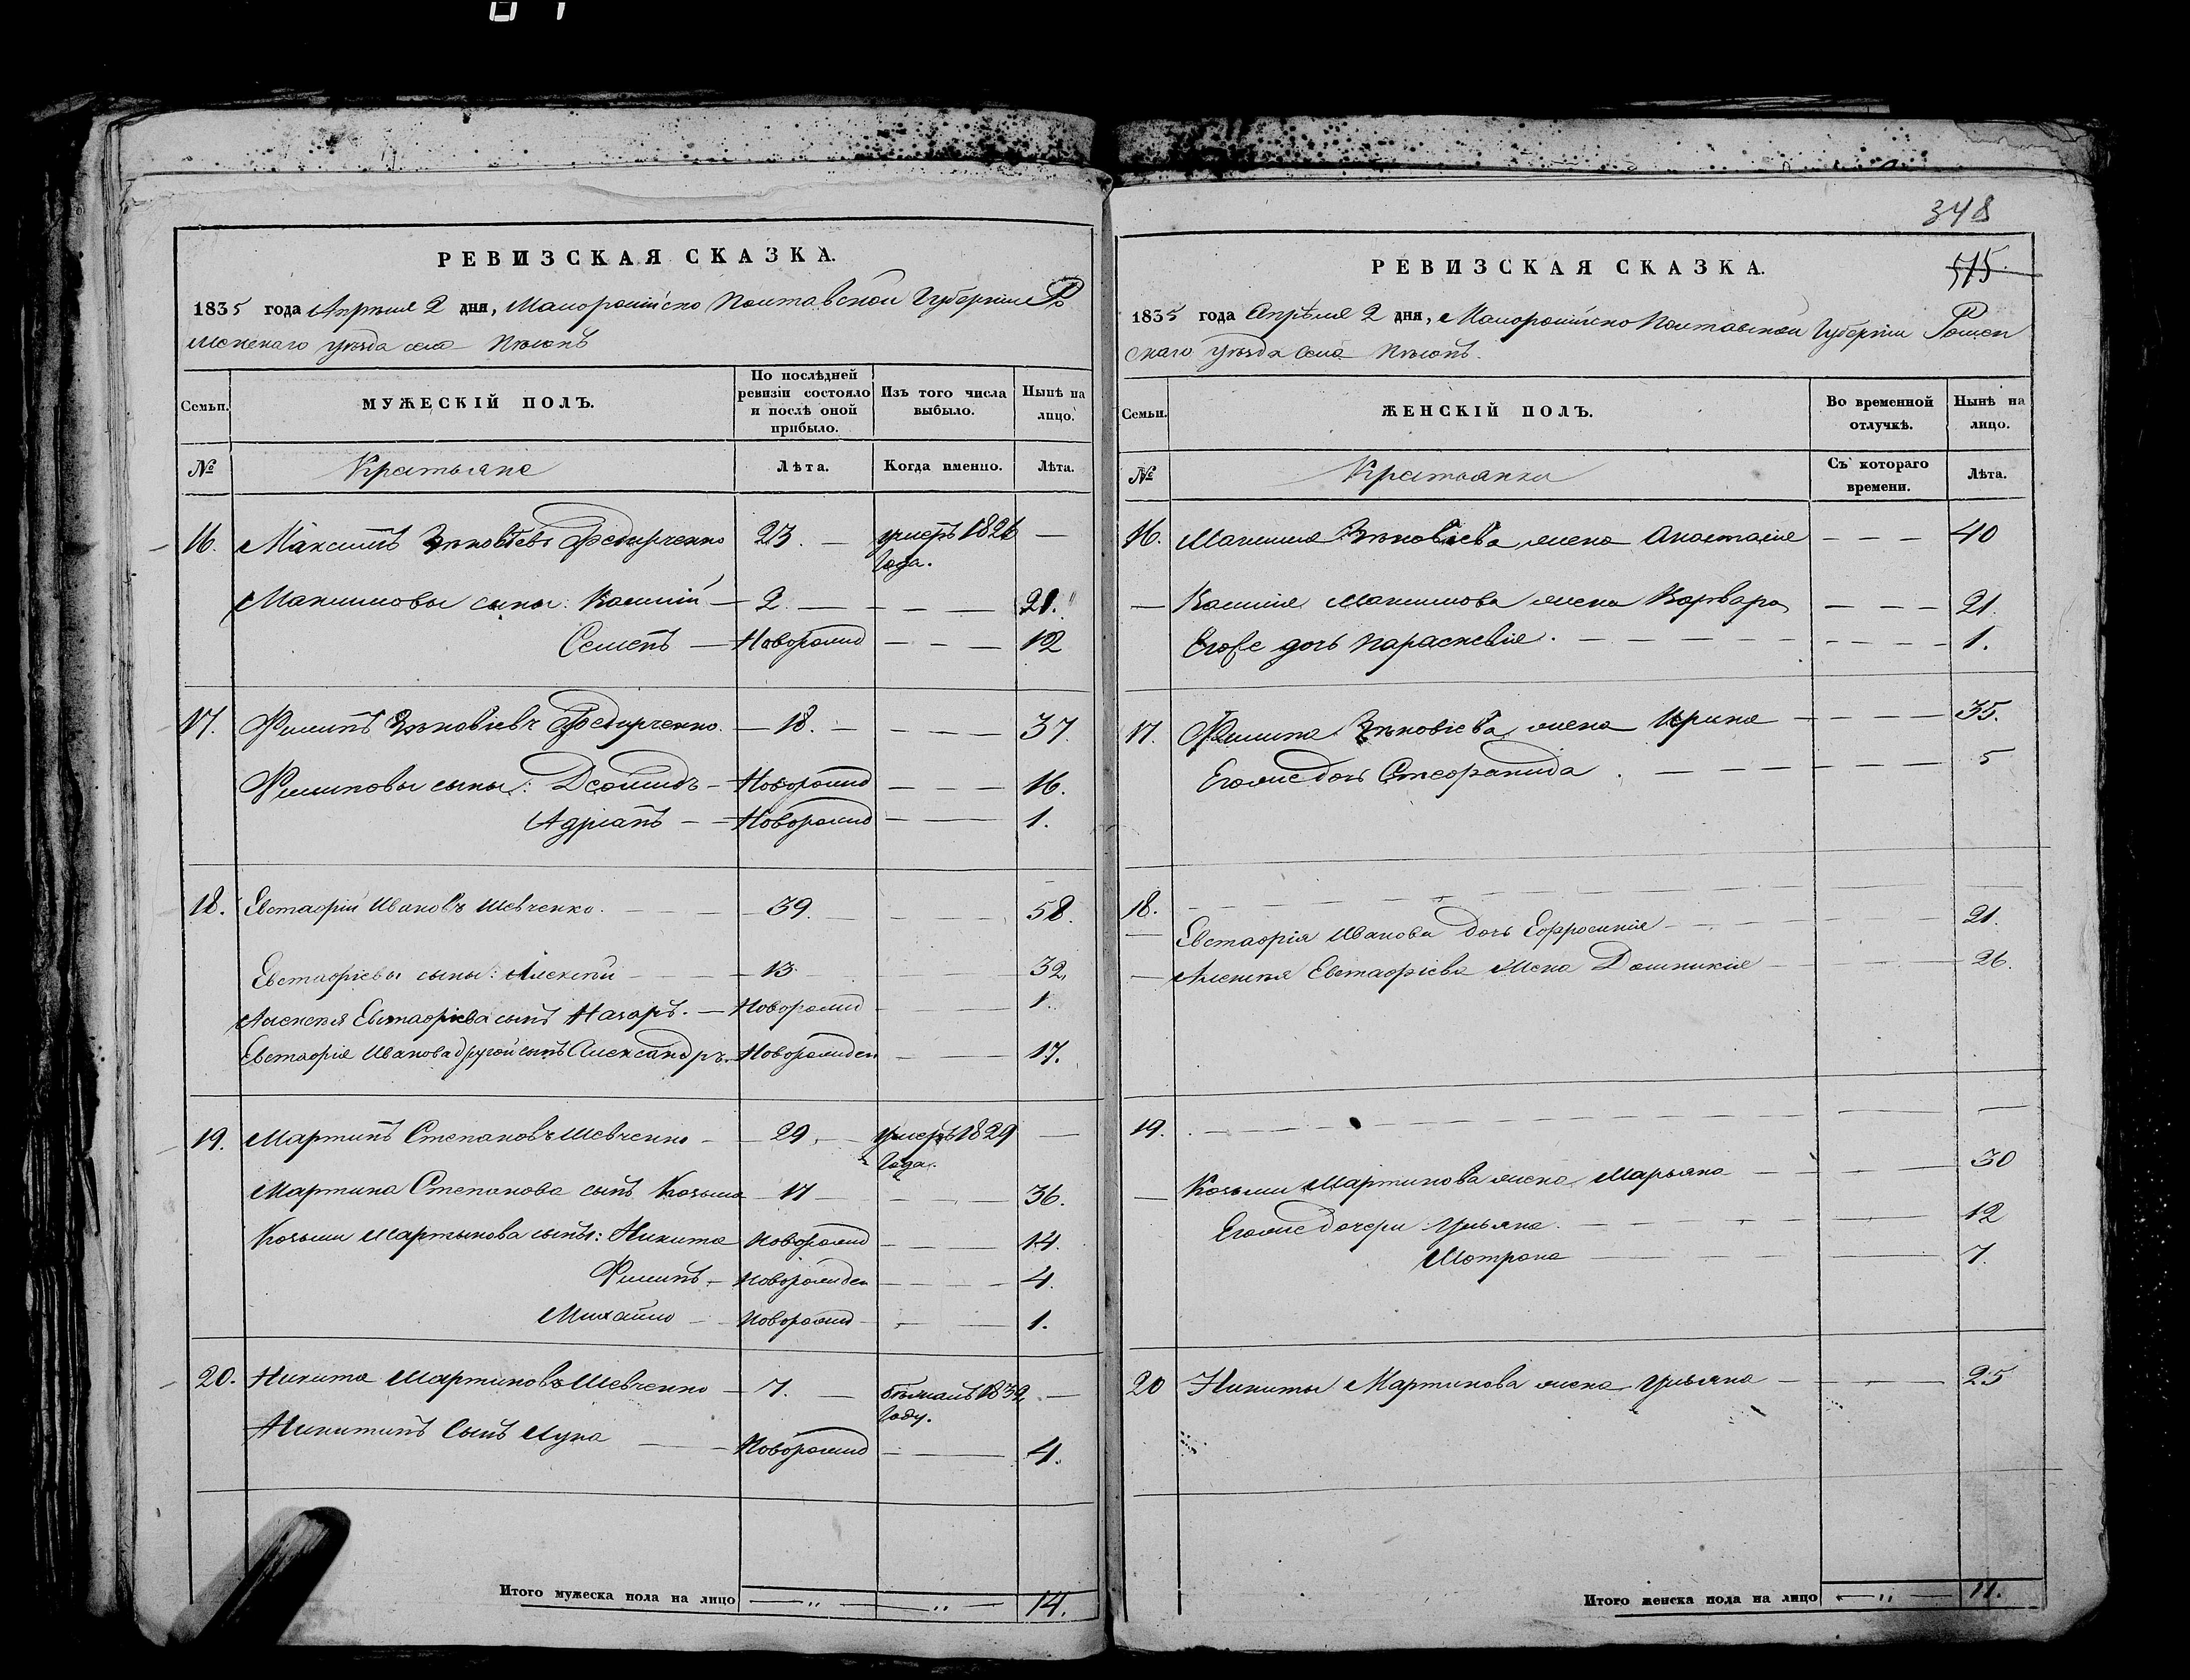 РЕВИЗСКАЯ СКАЗКА.
1835 года Апреля 2 дня, Малороссійско Полтавской Губерніи Ро
менскаго уезда села
Семьи.
МУЖЕСКІЙ ПОЛЪ.
По послѣдней ревизіи состояло и послѣ оной прибыло.
Изъ того числа выбыло.
Нынѣ на лицо.
№
Крестьяне
Лѣта.
Когда именно.
Лѣта.
16. Максимъ Зѣновіевъ Федирченко 23. — умеръ 1826 года. —
Максимовы сыны: Касіян — 2. — — — 21.
Семенъ — Новорожд — — — 12
17. Филипъ Зѣновіевъ Федирченко. — 18. — — — — 37.
Филиповы сыны: Деомидъ — Новорожд — — — 16.
Адріанъ — — Новорожд — — 1.
18. Евстафій Ивановъ Шевченко. — — — 39. — — — 58.
Евстафіевы сыны: Алексѣй — — 13. — — 32.
Алексѣя Евстафіева сынъ Назаръ. — Новорожд — — 1.
Евстафія Иванова другой сынъ Александръ. — Новорожден — — 17.
19. Мартинъ Степановъ Шевченко — — 29. — умеръ 1829 года. —
Мартина Степанова сынъ Козьма — 17 — — — 36.
Козьми Мартынова сыны: Никита Новорожд — — — 14.
Филипъ. — Новорожден — — — 4.
Михайло — Новорожд — — — 1.
20. Никита Мартиновъ Шевченко — 7. — бѣжалъ 1832 году. —
Никитинъ сынъ Лука — — Новорожд — — 4.
Итого мужеска пола на лицо — „ — „ — 14.
348
515.
РЕВИЗСКАЯ СКАЗКА.
1835 года Апрѣля 2 дня, Малороссійско Полтавской Губерніи Ромен
скаго уезда села
Семьи.
ЖЕНСКІЙ ПОЛЪ.
Во временной отлучкѣ.
Нынѣ на лицо.
№
Крестьянки
Съ котораго времени.
Лѣта.
16. Максима Зѣновіева жена Анастасія — — — 40
— Касіяна Максимова жена Варвара — — — 21.
Егоже дочь Параскевія. — — — — 1.
17. Филипа Зѣновіева жена Ирина — — — — 35.
Егоже дочь Стефанида. — — — — — 5
18. — — — — — — — —
— Евстафія Иванова дочь Ефросинія — — — 21.
— Алексѣя Евстафіева жена Домникія — — — 26.
19. — — — — — — — —
— Козьми Мартинова жена Марьяна — — — — 30
Егоже дочери: Ульяна. — — — — 12
Мотрона — — — — 7.
20 Никиты Мартинова жена Ульяна — — — — 25
Итого женска пола на лицо — „ — 11.